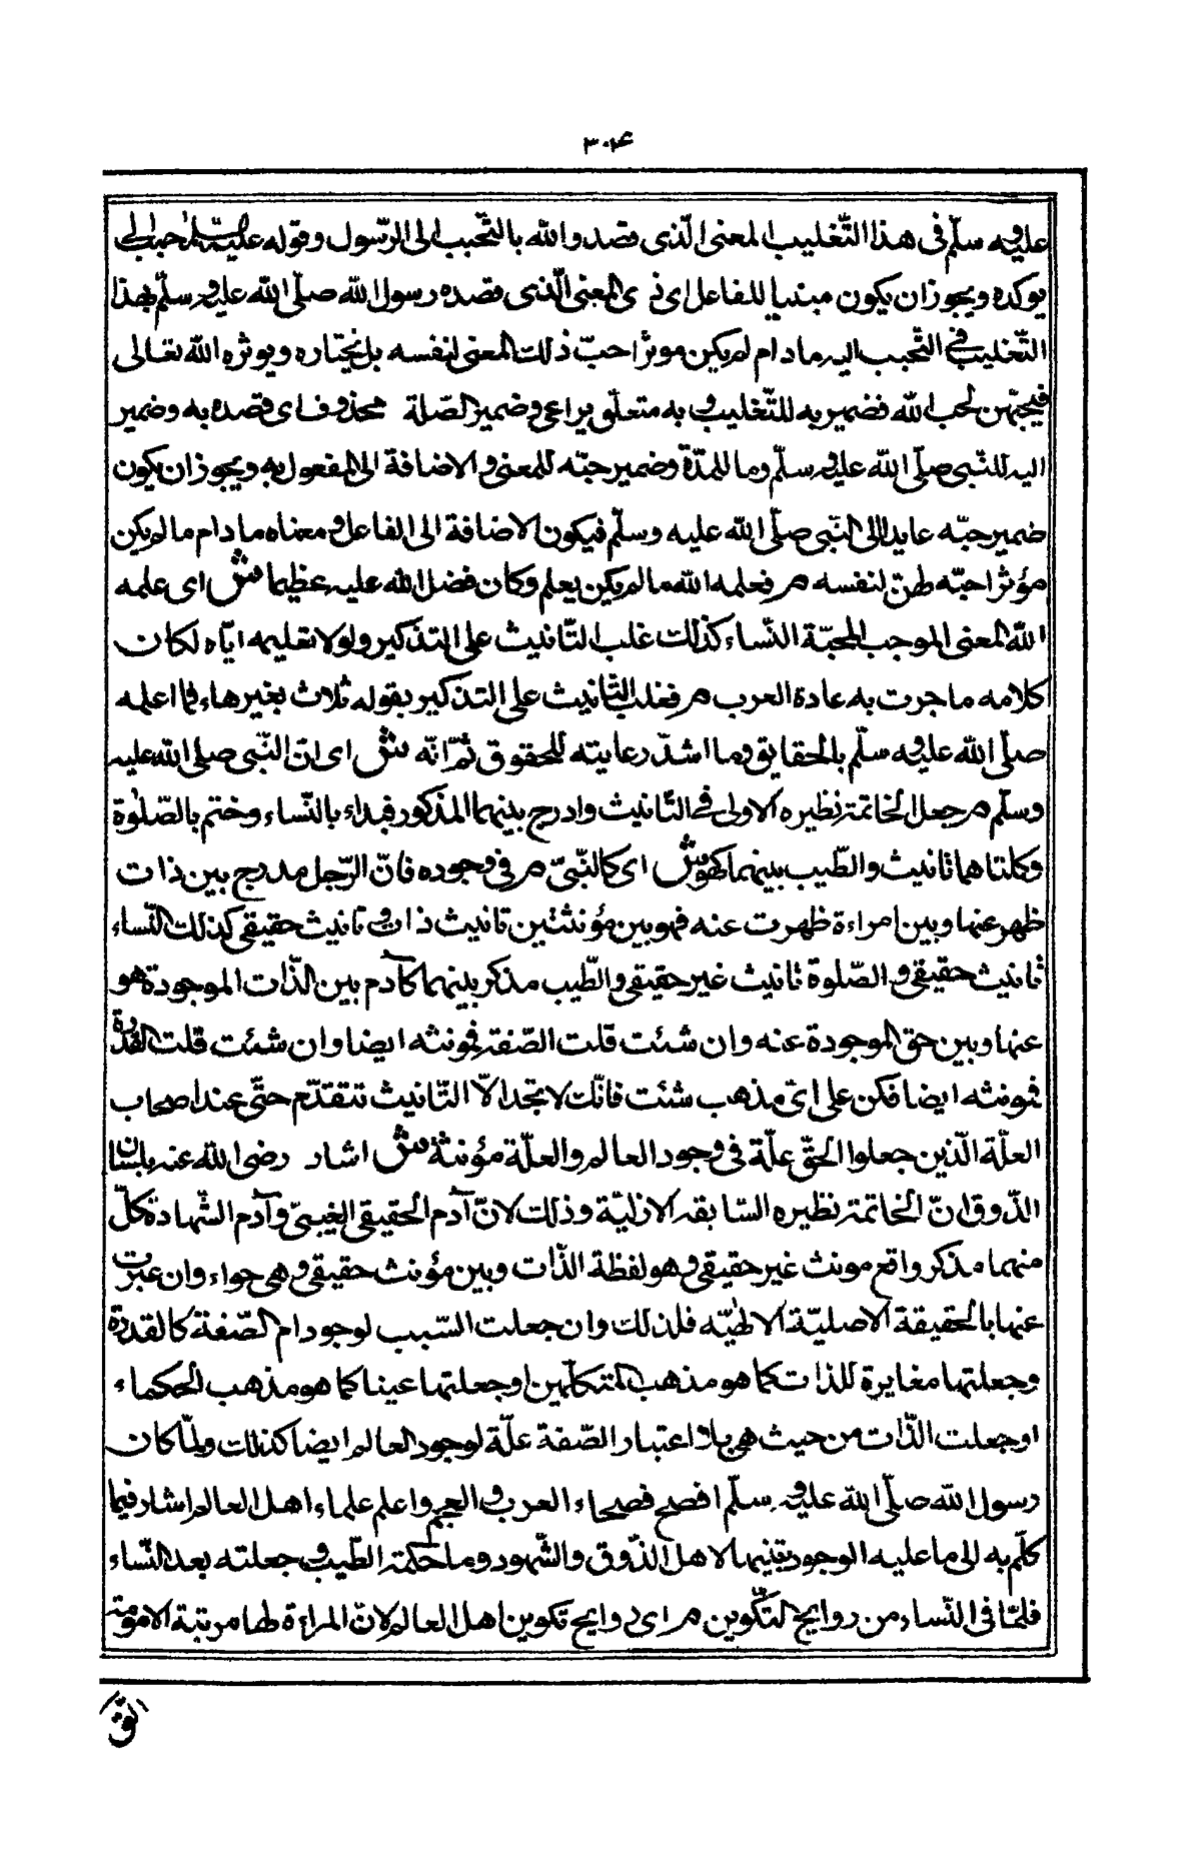 ٣٠٤
عليه وسلّم فى هذا التّغليب المعنى الّذى قصد والله بالتّحبب الى الرّسول وقوله عليه السّلام حبّب الى
يوكده ويجوز ان يكون مبنيا للفاعل اى المعنى الّذى قصده رسول الله صلّى الله عليه وسلّم بهذا
التّغليب فى التّحبب اليه مادام لم يكن موثرا حبّ ذلك المعنى لنفسه بل يختاره ويوثره الله تعالى
فيحبّهن لحب الله فضمير به للتّغليب وبه متعلّق يراعى وضمير الصّلة محذوف اى قصده به وضمير
اليه للنّبى صلّى الله عليه وسلّم وما للمدّة وضمير حبّه للمعنى والاضافة الى المفعول به ويجوز ان يكون
ضمير حبّه عايدا الى النّبى صلّى الله عليه وسلّم فيكون الاضافة الى الفاعل ومعناه مادام مالم يكن
مؤثرا حبّه لهنّ لنفسه م فعلمه الله مالم يكن يعلم وكان فضل الله عليه عظيما ش اى علمه
الله المعنى الموجب لمحبّة النّساء كذلك غلب التّانيث على التذكير ولولا تعليمه ايّاه لكان
كلامه ما جرت به عادة العرب م فغلب التّانيث على التذكير بقوله ثلاث بغير هاء فما اعلمه
صلّى الله عليه وسلّم بالحقايق وما اشدّ رعايته للحقوق ثمّ انّه ش اى انّ النّبى صلى الله عليه
وسلّم م جعل الخاتمة نظيره الاولى فى التّانيث وادرج بينهما المذكور فبداء بالنّساء وختم بالصّلوة
وكلتاهما تانيث والطّيب بينهما كهو ش اى كالنّبىّ م فى وجوده فانّ الرّجل مدرج بين ذات
ظهر عنها وبين امراءة ظهرت عنه فهو بين مؤنثتين تانيث ذات وتانيث حقيقى كذلك النّساء
تانيث حقيقى والصّلوة تانيث غير حقيقى والطّيب مذكر بينهما كآدم بين الذّات الموجودة هو
عنها وبين حق الموجودة عنه وان شئت قلت الصّفة فمونثه ايضا وان شئت قلت القدرة
فمونثه ايضا فكن على اىّ مذهب شئت فانّك لا تجد الاّ التّانيث تتقدّم حتّى عند اصحاب
العلّة الّذين جعلوا الحقّ علّة فى وجود العالم والعلّة مؤنثة ش اشار رضى الله عنه بلسان
الذّوق انّ الخاتمة نظيره السّابقه الازليّة وذلك لانّ آدم الحقيقى الغيبىّ وآدم الشّهادة كلّ
منهما مذكر واقع مونث غير حقيقى وهو لفظة الذّات وبين مؤنث حقيقى وهى حواء وان عبرت
عنها بالحقيقة الاصليّة الالهيّه فلذلك وان جعلت السّبب لوجودام الصّفة كالقدرة
وجعلتها مغايرة للذات كما هو مذهب المتكلّمين او جعلتها عينا كما هو مذهب الحكماء
او جعلت الذّات من حيث هى بلا اعتبار الصّفة علّة لوجود العالم ايضا كذلك ولمّا كان
رسول الله صلّى الله عليه وسلّم افصح فصحاء العرب والعجم واعلم علماء اهل العالم اشار فيما
كلّم به الى ما عليه الوجود تنبيها لاهل الذّوق والشّهود وما حكمة الطّيب وجعلته بعد النّساء
فلمّا فى النّساء من روايح التّكوين م اى روايح تكوين اهل العالم لانّ المراءة لها مرتبة الامومة
الّتى